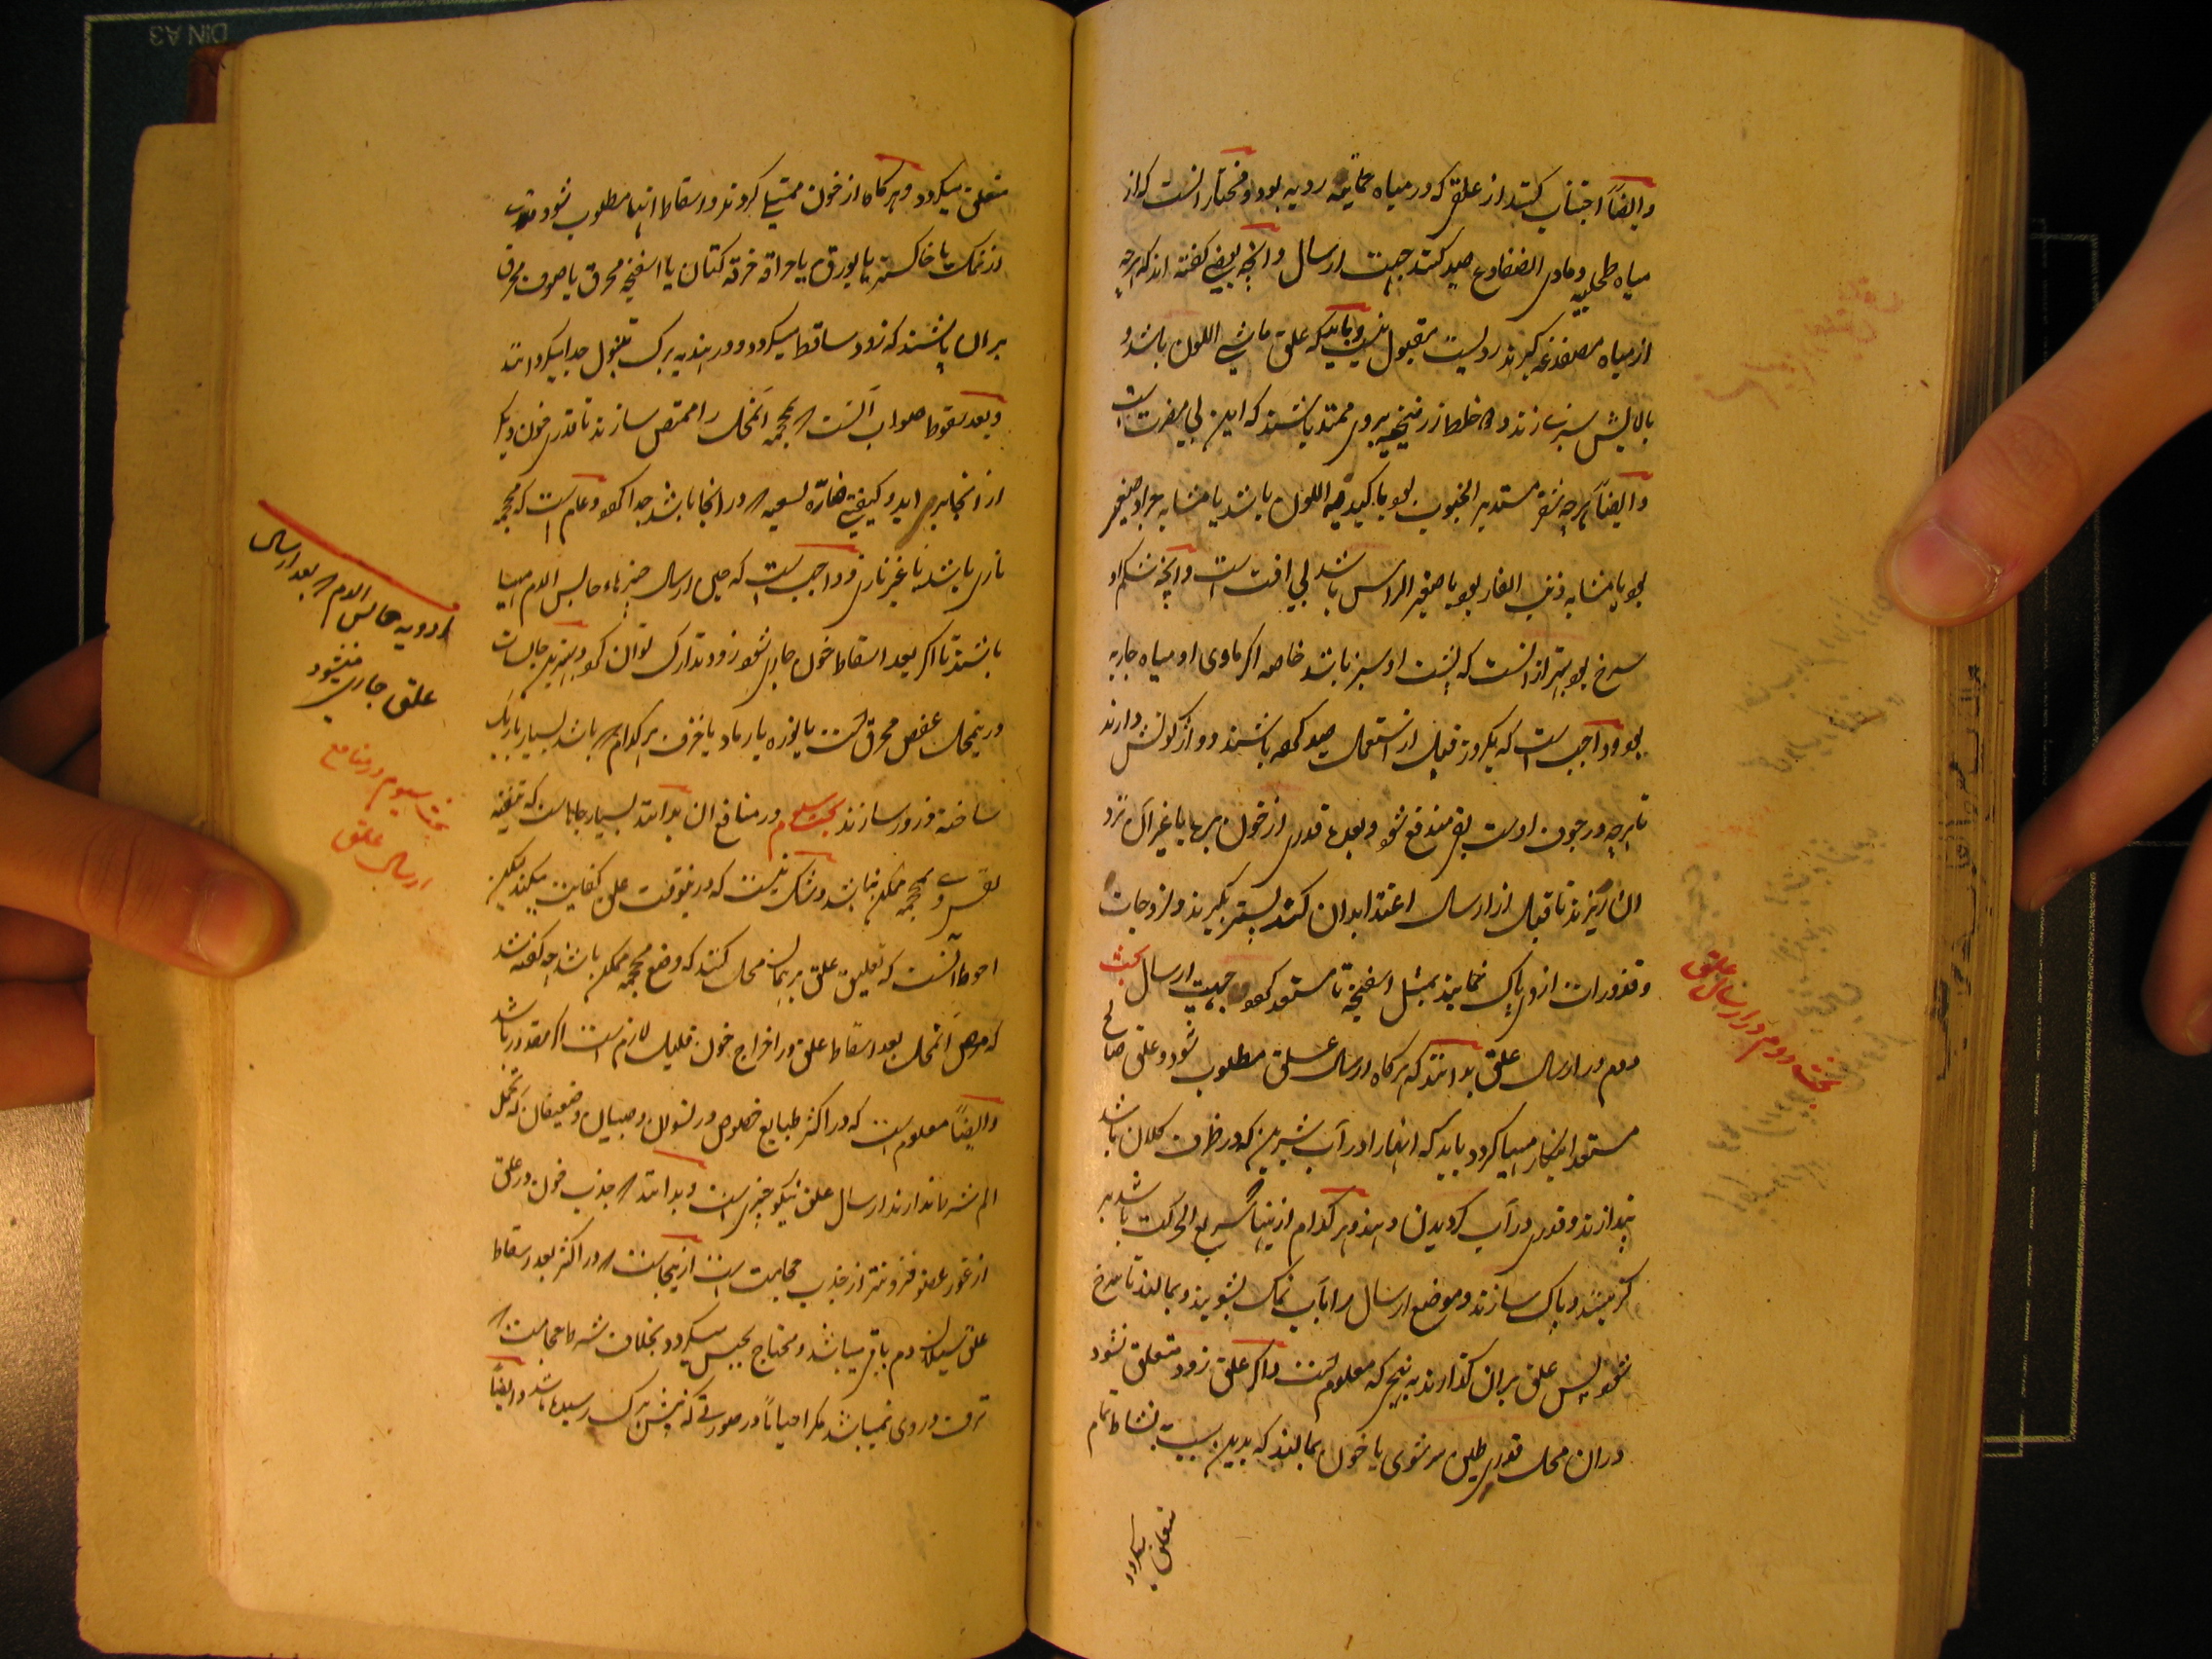 وایضاً اجتناب کنند از علقی که در میاه حمائیه ردیه بود و مختار انست که از
میاه طحلبیه و ماوی الضفادع صید کنند جهت ارسال و انچه بعضی کفته اند که هرچه
از میاه مضفدعه کیرند ردیست مقبول نیست و باید که علق ماشی اللون باشد و
بالایش سبز سازند و دو خط زرنیخیه بروی ممتد باشند که این بی مضرت است
وایضاً هرچه اشقر مستدیر الجنوب بود یا کبدیه اللون باشد یا مشابه جراد صغیر
بود یا مشابه ذنب الفار بود یا صغیر الراس باشد بی افت است و انچه شکم او
سرخ بود بهتر از انست که پشت او سبز باشد خاصه اکر ماوی او میاه جاریه
بود و واجب است که یکروز قبل از استعمال صید کرده باشند و واژکونش دارند
تا هرچه در جوف اوست بقی مندفع شود و بعده قدری از خون بره یا غیر آن نزد
ان ریزند تا قبل از ارسال اغتذا بدان کنند پستر بکیرند و لزوجات
و قذورات از وی پاک نمایند بمثل اسفنجه تا مستعد کردد جهت ارسال بحث
دوم در ارسال علق بدانند که هرکاه ارسال علق مطلوب شود و علق صالح
مستعد اینکار مهیا کردد باید که انها را در آب شیرین که در ظرف کلان باشد
بیندازند و قدری در آب کردیدن دهند و هر کدام از اینها سریع الحرکت باشد بر
کرفته و پاک سازند و موضع ارسال را بآب نمک بشویند و بمالند تا سرخ
شود پس علق بران کذارند به نهجی که معلوم است و اکر علق زود متعلق نشود
دران محل قدری طین سرشوی یا خون بمالند که بدین سبب بنشاط تمام
متعلق میکردد
بحث دوم در ارسال علق
متعلق میکردد و هرکاه از خون ممتلی کردند و اسقاط انها مطلوب شود قدری
از نمک یا خاکستر یا بورق یا حراقه خرقه کتان یا اسفنجه محرق یا صوف محرق
بران پاشند که زود ساقط میکردد و در هند به برک تنبول جدا میکردانند
و بعد سقوط صواب آنست که محجمه آنمحل را ممتص سازند تا قدری خون دیکر
از انجا بر اید و کیفیتی ضارّه لسعیه که در انجا باشد جدا کردد و عام است که محجمه
ناری باشد یا غیر ناری و واجب است که حین ارسال چیزهاء حابس الدم مهیا
باشند تا اکر بعد اسقاط خون جاری شود زود تدارک توان کرد و بهترین حابسات
درینمحل عفص محرق است یا نوره یا رماد یا خزف هر کدام که باشد بسیار باریک
ساخته ذرور سازند بحث سیوم در منافع ان بدانند بسیار جاهاست که تنقیه
بفصد و محجمه ممکن نباشد و شک نیست که درینوقت علق کفایت میکند لیکن
احوط آنست که تعلیق علق بر همان محل کنند که وضع محجمه ممکن باشد چه کفته شد
که مص آنمحل بعد اسقاط علق و اخراج خون قلیل لازم است اکر مقدور باشد
وایضاً معلوم است که در اکثر طبایع خصوص در نسوان و صبیان و ضعیفان که تحمل
الم شرط ندارند ارسال علق نیکو چیزی است و بدانند که جذب خون در علق
از غور عضو فزونتر از جذب محاجمت است ازینجاست که در اکثر بعد سقاط
علق سیلان دم باقی میباشد و محتاج بحبس میکردد بخلاف شرط محاجمت که
نزف در وی نمیباشد مکر احیاناً در صورتی که نیش برک رسیده باشد وایضاً
ادویه حابس الدم که بعد ارسال
علق جاری میشود
بحث سیوم در منافع
ارسال علق